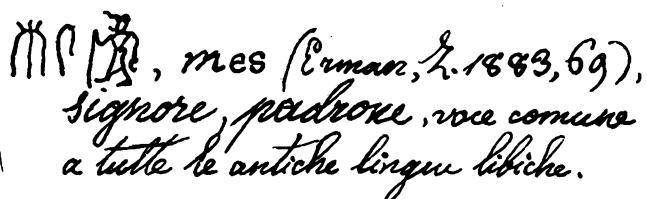 𓄟𓋴𓀀, mes (Erman, Z. 1883, 69),
signore, padrone, voce comune
a tutte le antiche lingue libiche.